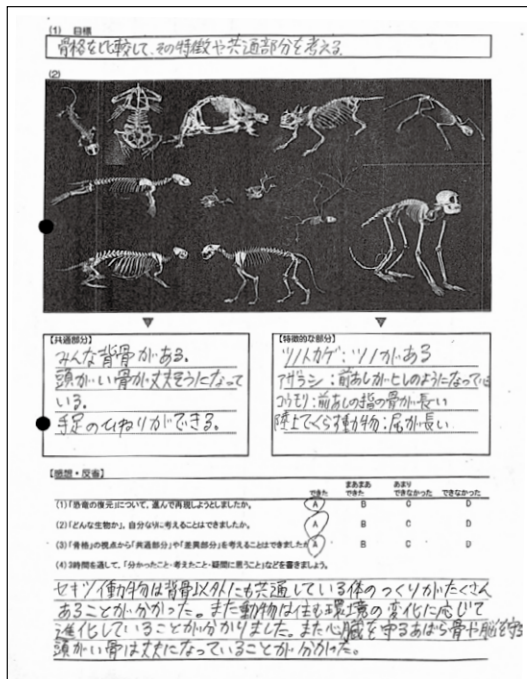 (1) 目標
骨格を比較して、その特徴や共通部分を考える。
(2)
【共通部分】
みんな背骨がある。
頭がい骨が丈夫そうになって
いる。
手足のひねりができる。
【特徴的な部分】
ツノトカゲ:ツノがある
アザラシ:前あしがヒレのようになっている
コウモリ:前あしの指の骨が長い
陸上でくらす動物:尾が長い
【感想・反省】
できた まあまあできた あまりできなかった できなかった
(1)「恐竜の復元」について、進んで再現しようとしましたか。 A B C D
(2)「どんな生物か」、自分なりに考えることはできましたか。 A B C D
(3)「骨格」の視点から「共通部分」や「差異部分」を考えることはできましたか A B C D
(4)3時間を通して、「分かったこと・考えたこと・疑問に思うこと」などを書きましょう。
セキツイ動物は背骨以外にも共通している体のつくりがたくさん
あることが分かった。また動物は住む環境の変化に応じて
進化していることが分かりました。また心臓を守るあばら骨や脳を守る
頭がい骨は丈夫になっていることが分かった。